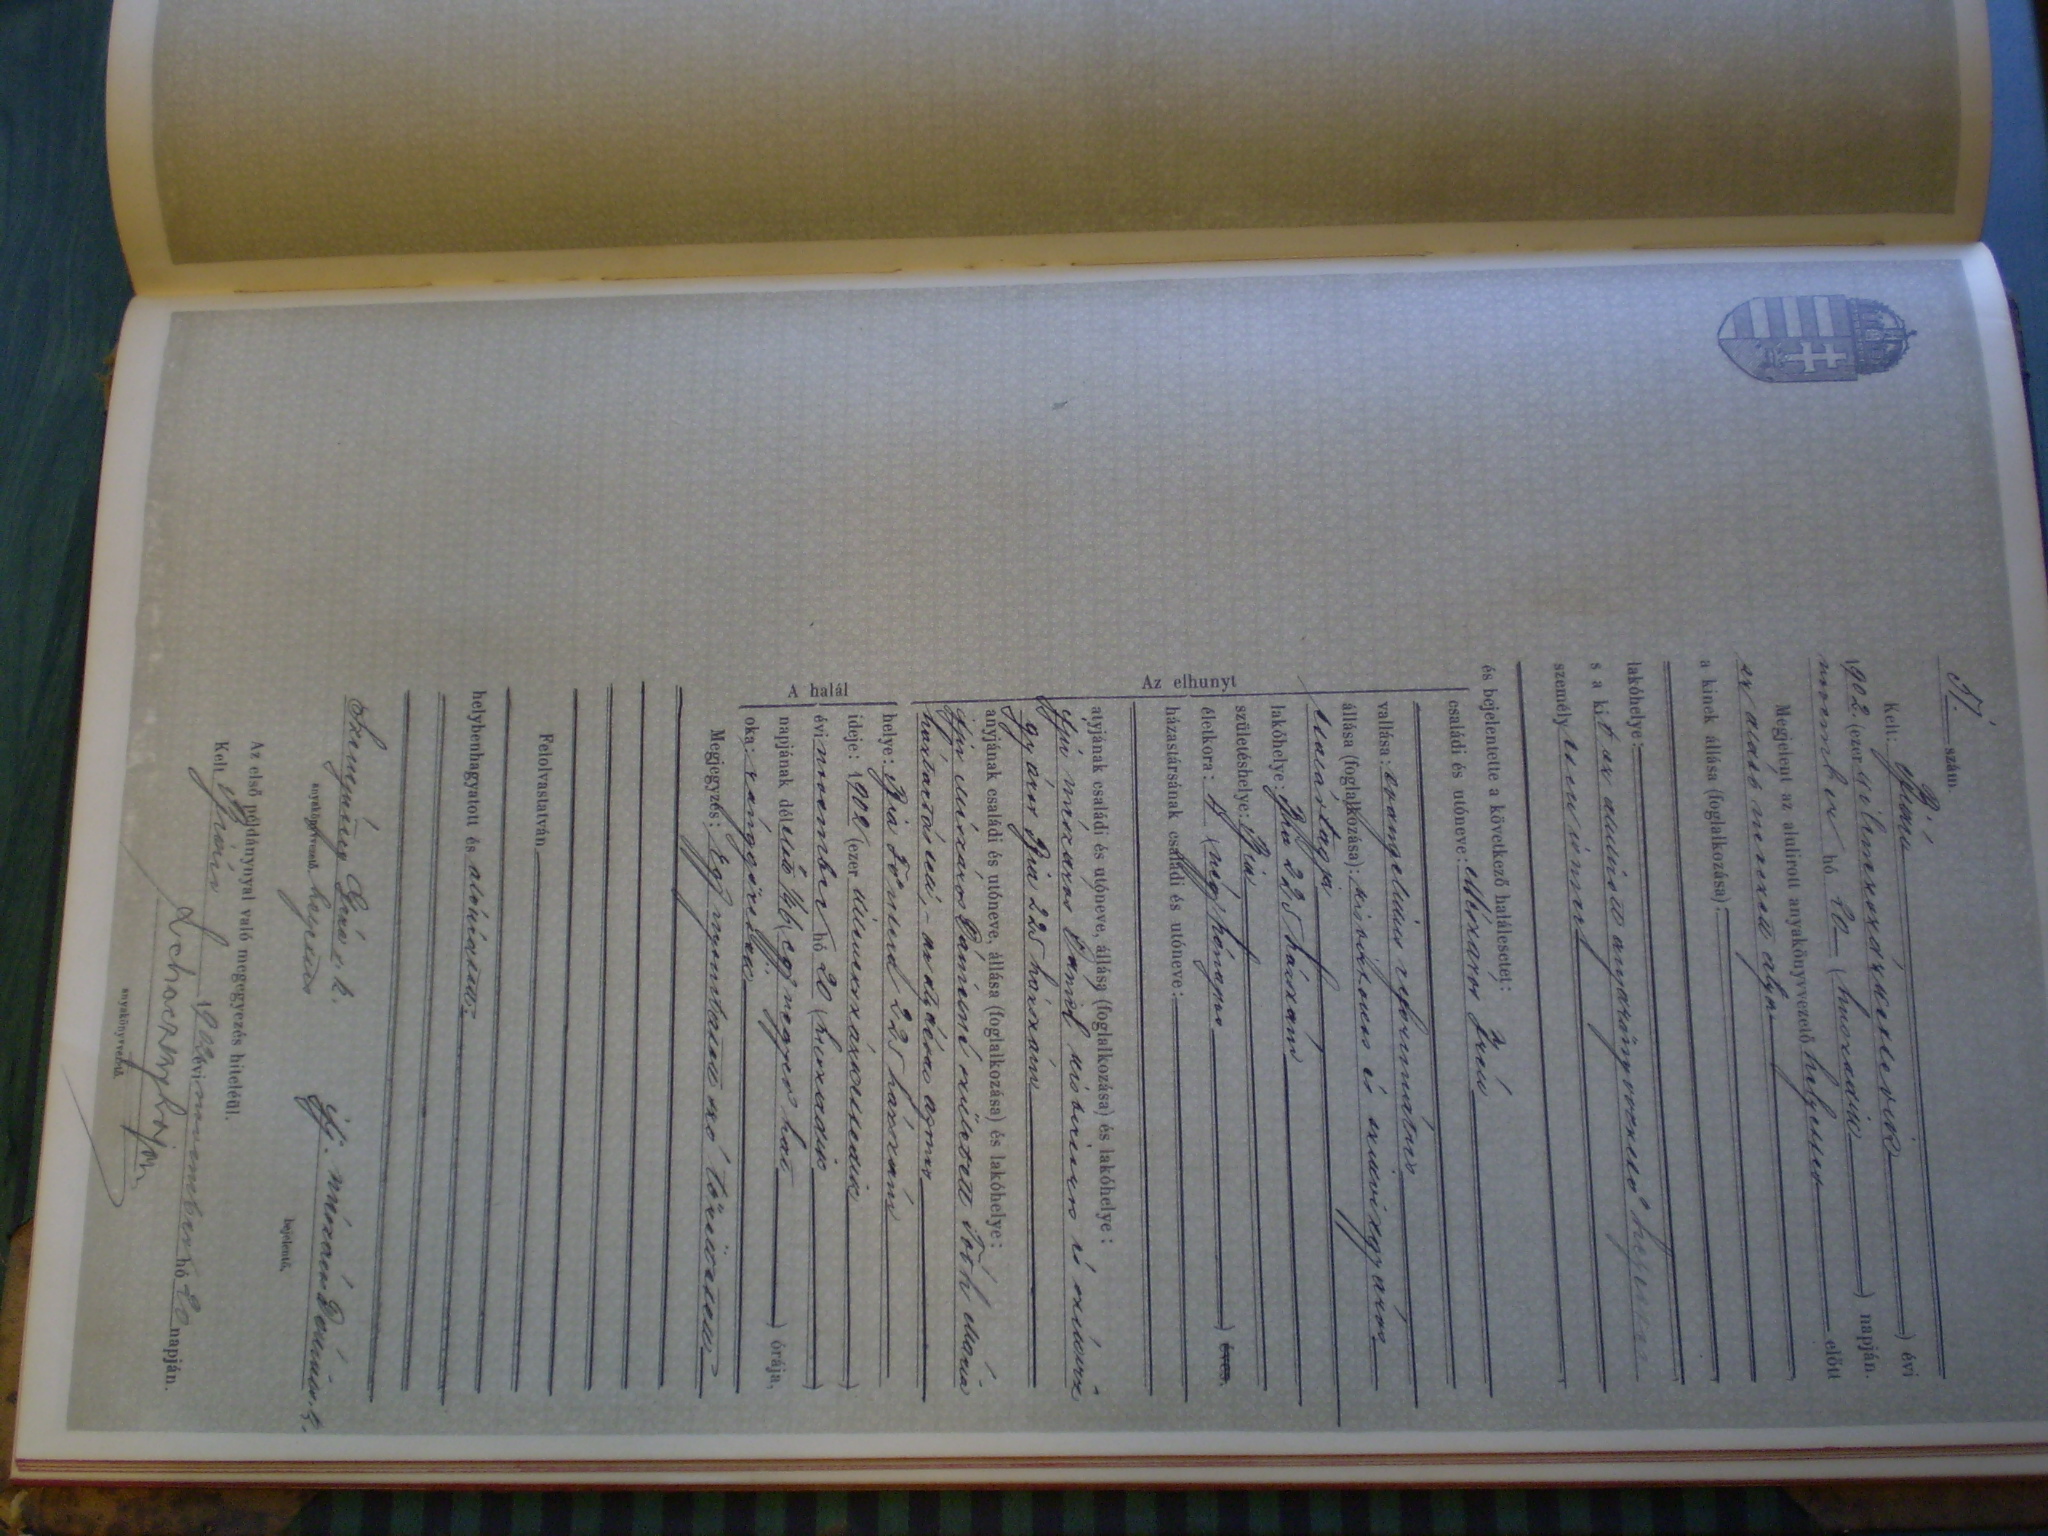 szám.
Kelt: Bián
1902. (ezer kilenczszázkettedik) évi
november hó 20 (huszadik) napján.
Megjelent az alulirott anyakönyvvezető helyettes előtt
az alább nevezett atya
a kinek állása (foglalkozása):
lakóhelye:
s a kit az alulirott anyakönyvvezető helyettes
személyesen ismer
és bejelentette a következő halálesetet:
Az elhunyt
családi és utóneve: Mészáros
vallása: evangelikus református
állása (foglalkozása): kisbirtokos és
családtagja
lakóhelye: Bia 225 házszám
születéshelye: Bia
életkora: 4 (négy hónapos) éves.
házastársának családi és utóneve:
atyjának családi és utóneve, állása (foglalkozása) és lakóhelye:
ifjú mészáros Dániel
Bia 225 házszám
anyjának családi és utóneve, állása (foglalkozása) és lakóhelye:
ifjú mészáros Dánielné született Tóth Mária
háztartásbeli, - az előbbivel egyező
A halál
helye: Bia község 225 házszám
ideje: 1902 (ezer kilenczszázkettedik)
évi november hó 20 (huszadik)
napjának délelőtt ¼6 (egy negyed hat) órája,
oka: rángógörcsök
Megjegyzés: Egy nyomtatott szó törültetett
Felolvastatván,
helybenhagyatott és aláiratott
Géza s. k.
anyakönyvvezető helyettes
ifj. mészáros Dániel s. k.
bejelentő.
Az első példánynyal való megegyezés hiteléül.
Kelt Bián 1902 évi november hó 20 napján.
anyakönyvvezető.